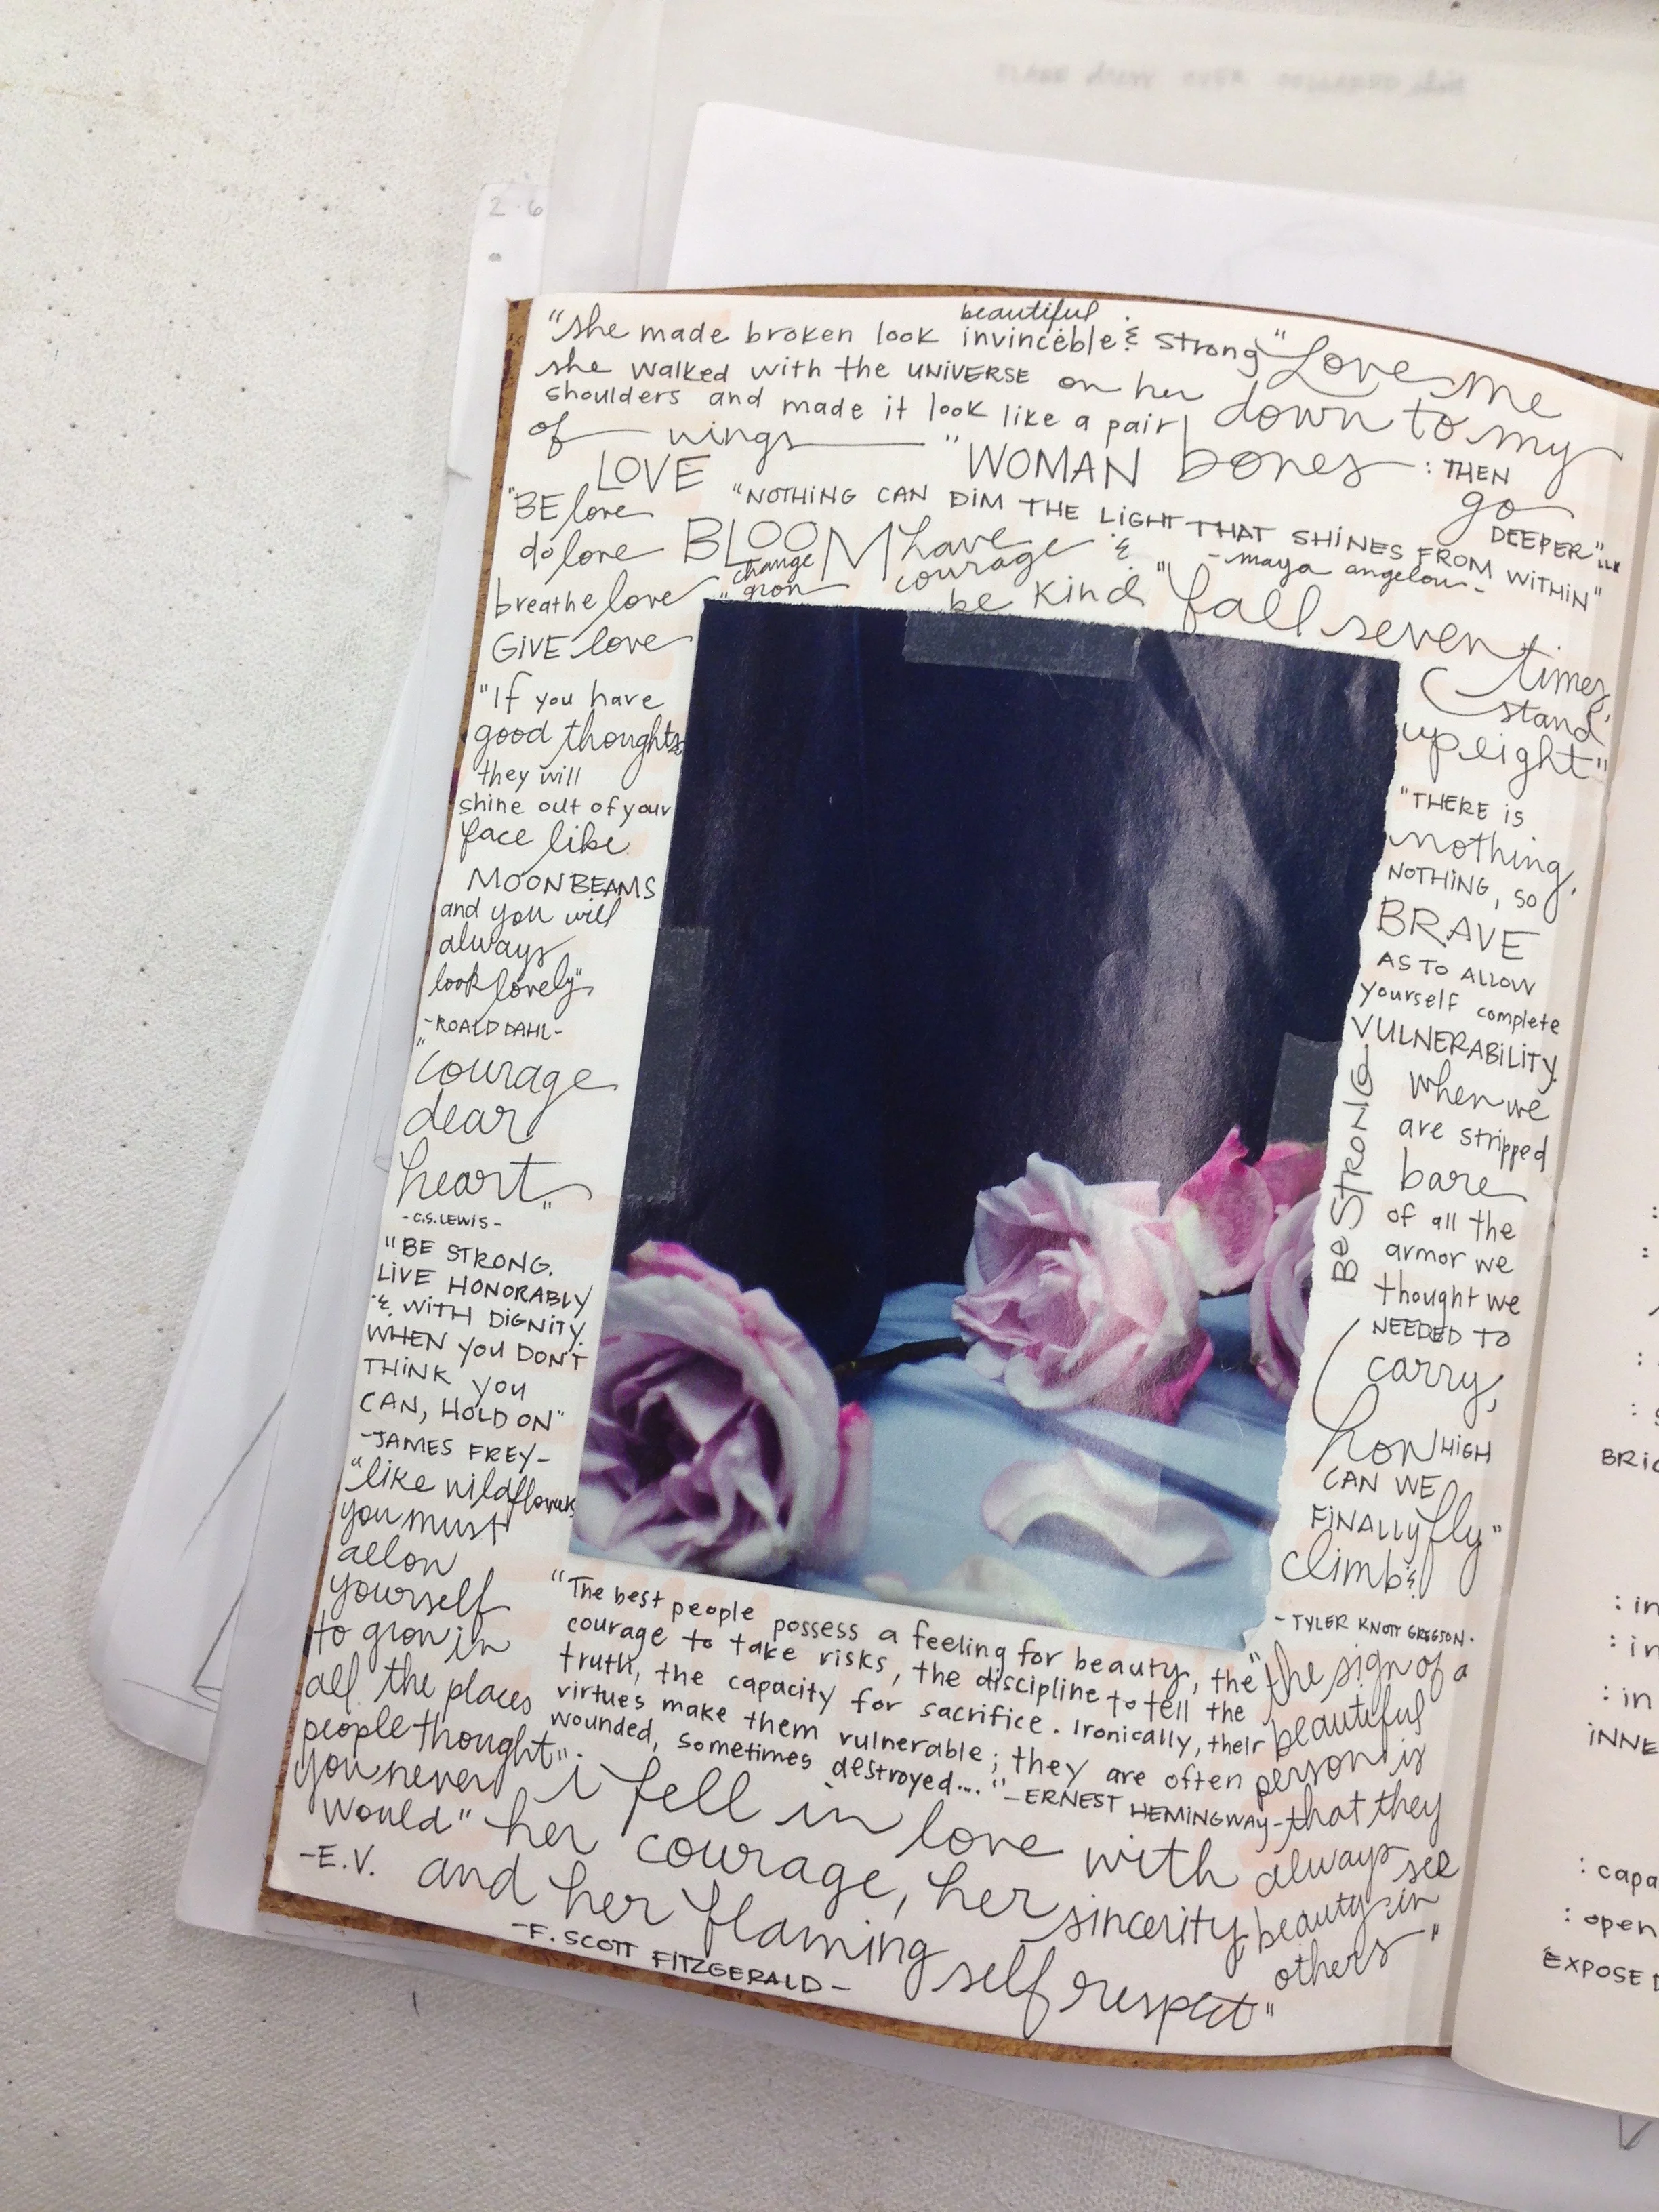 2.6
beautiful
"she made broken look invincible & strong"
she walked with the UNIVERSE on her
shoulders and made it look like a pair
of wings"
"Love me
down to my
bones: THEN
go
DEEPER"
LOVE
WOMAN
"BE love
do love
breathe love
GIVE love
"NOTHING CAN DIM THE LIGHT THAT SHINES FROM WITHIN"
-maya angelou-
BLOOM
change
grow
have
courage &
be kind
"fall seven
times,
stand
up eight"
"If you have
good thoughts
they will
shine out of your
face like
MOONBEAMS
and you will
always
look lovely"
-ROALD DAHL-
"courage
dear
heart"
-C.S. LEWIS-
"BE STRONG.
LIVE HONORABLY
& WITH DIGNITY.
WHEN you DON'T
THINK you
CAN, HOLD ON"
-JAMES FREY-
"like wildflowers
you must
allow
yourself
to grow in
all the places
people thought
you never
would"
-E.V.
"THERE is
nothing,
NOTHING, SO
BRAVE
AS TO ALLOW
yourself complete
VULNERABILITY.
When we
are stripped
bare
of all the
armor we
thought we
NEEDED TO
carry,
how HIGH
CAN WE
FINALLY fly"
climb &
- TYLER KNOTT GREGSON-
Be STRONG
"The best people possess a feeling for beauty, the
courage to take risks, the discipline to tell the
truth, the capacity for sacrifice. Ironically, their
virtues make them vulnerable; they are often
wounded, sometimes destroyed...."-ERNEST HEMINGWAY-
"the sign of a
beautiful
person is
that they
always see
beauty in
others"
"i fell in love with
her courage, her sincerity,
and her flaming self respect"
-F. SCOTT FITZGERALD-
BRI
: in
: in
: in
INNE
: capa
: open
EXPOSE